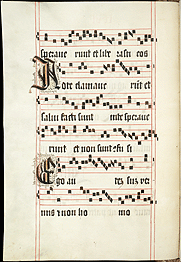 speraue runt et libe rasti eos
In te clamaue runt et
salui facti sunt in te speraue
runt et non sunt con fu si
Ego au tem sum ver
mis et non ho mo